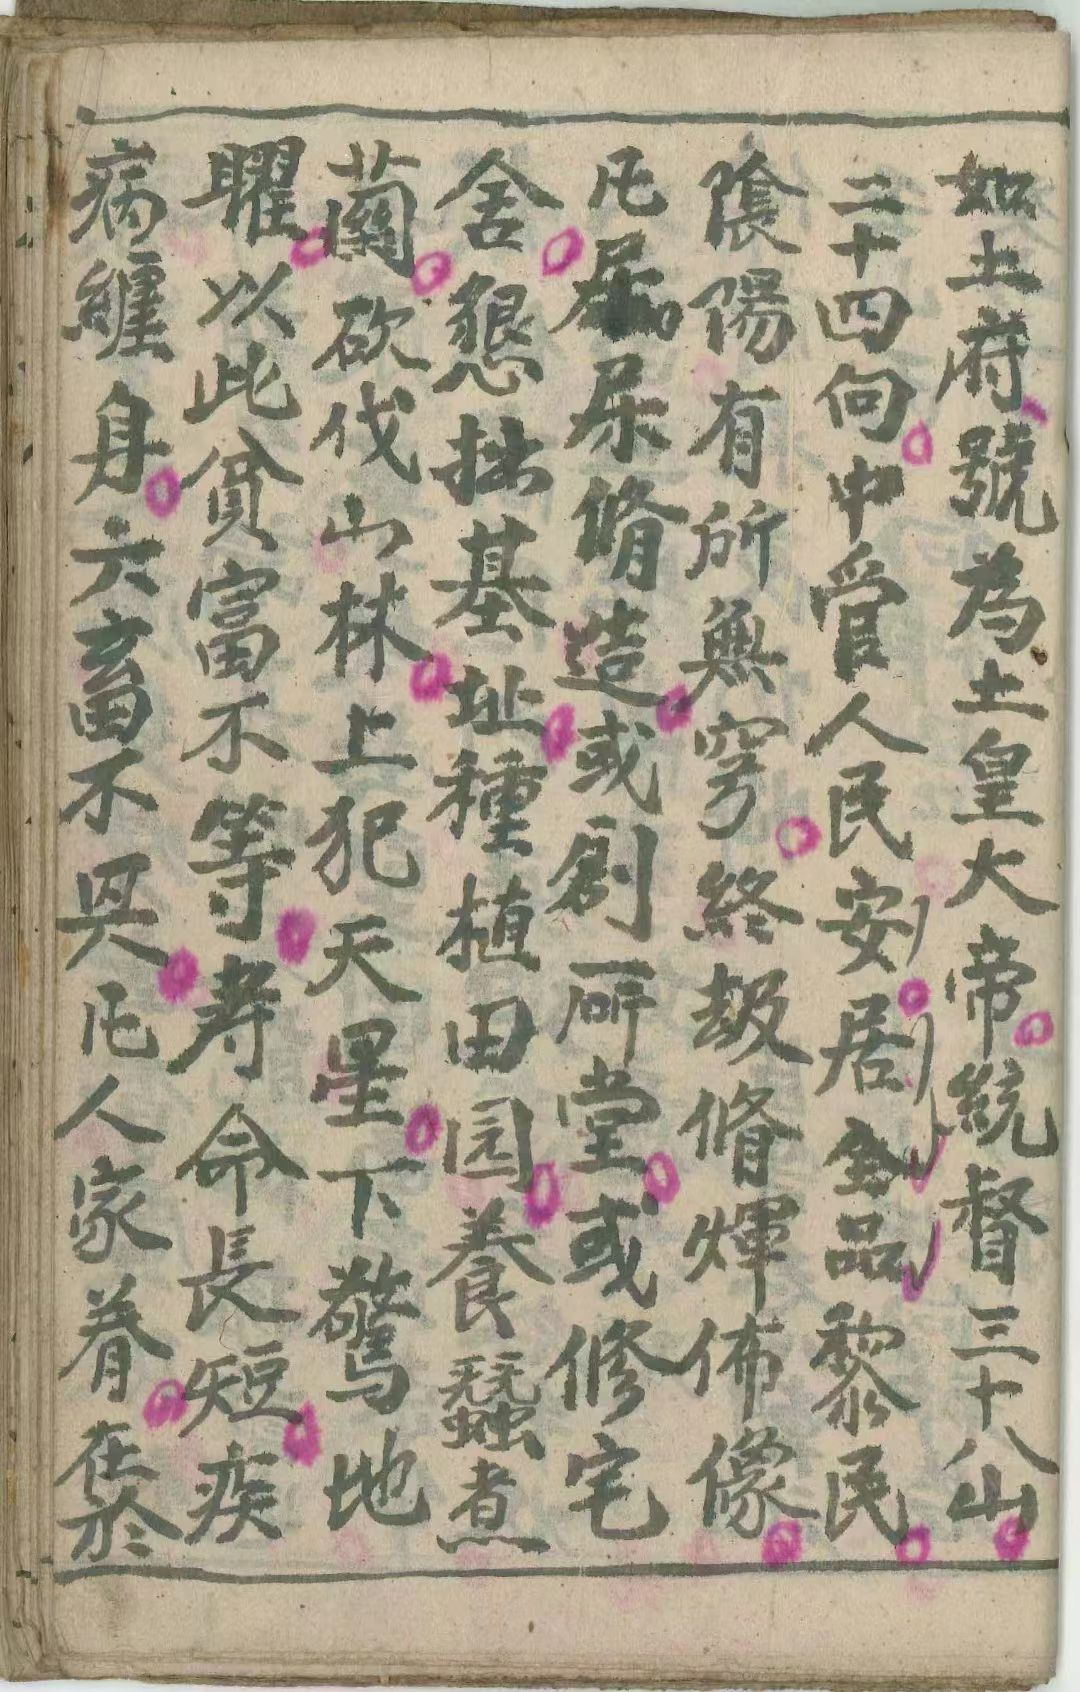 如土府號為土皇大帝統督三十八山
二十四向中管人民安居金品黎民
陰陽有所無窮終劫脩煇佈像
凡居屎脩造或創研堂或修宅
舍懇拙基址種植田园養蠶煮
蘭砍伐山林上犯天星下驚地
曜以此貧富不等寿命長短疾
病纏身六畜不興凡人家眷在於